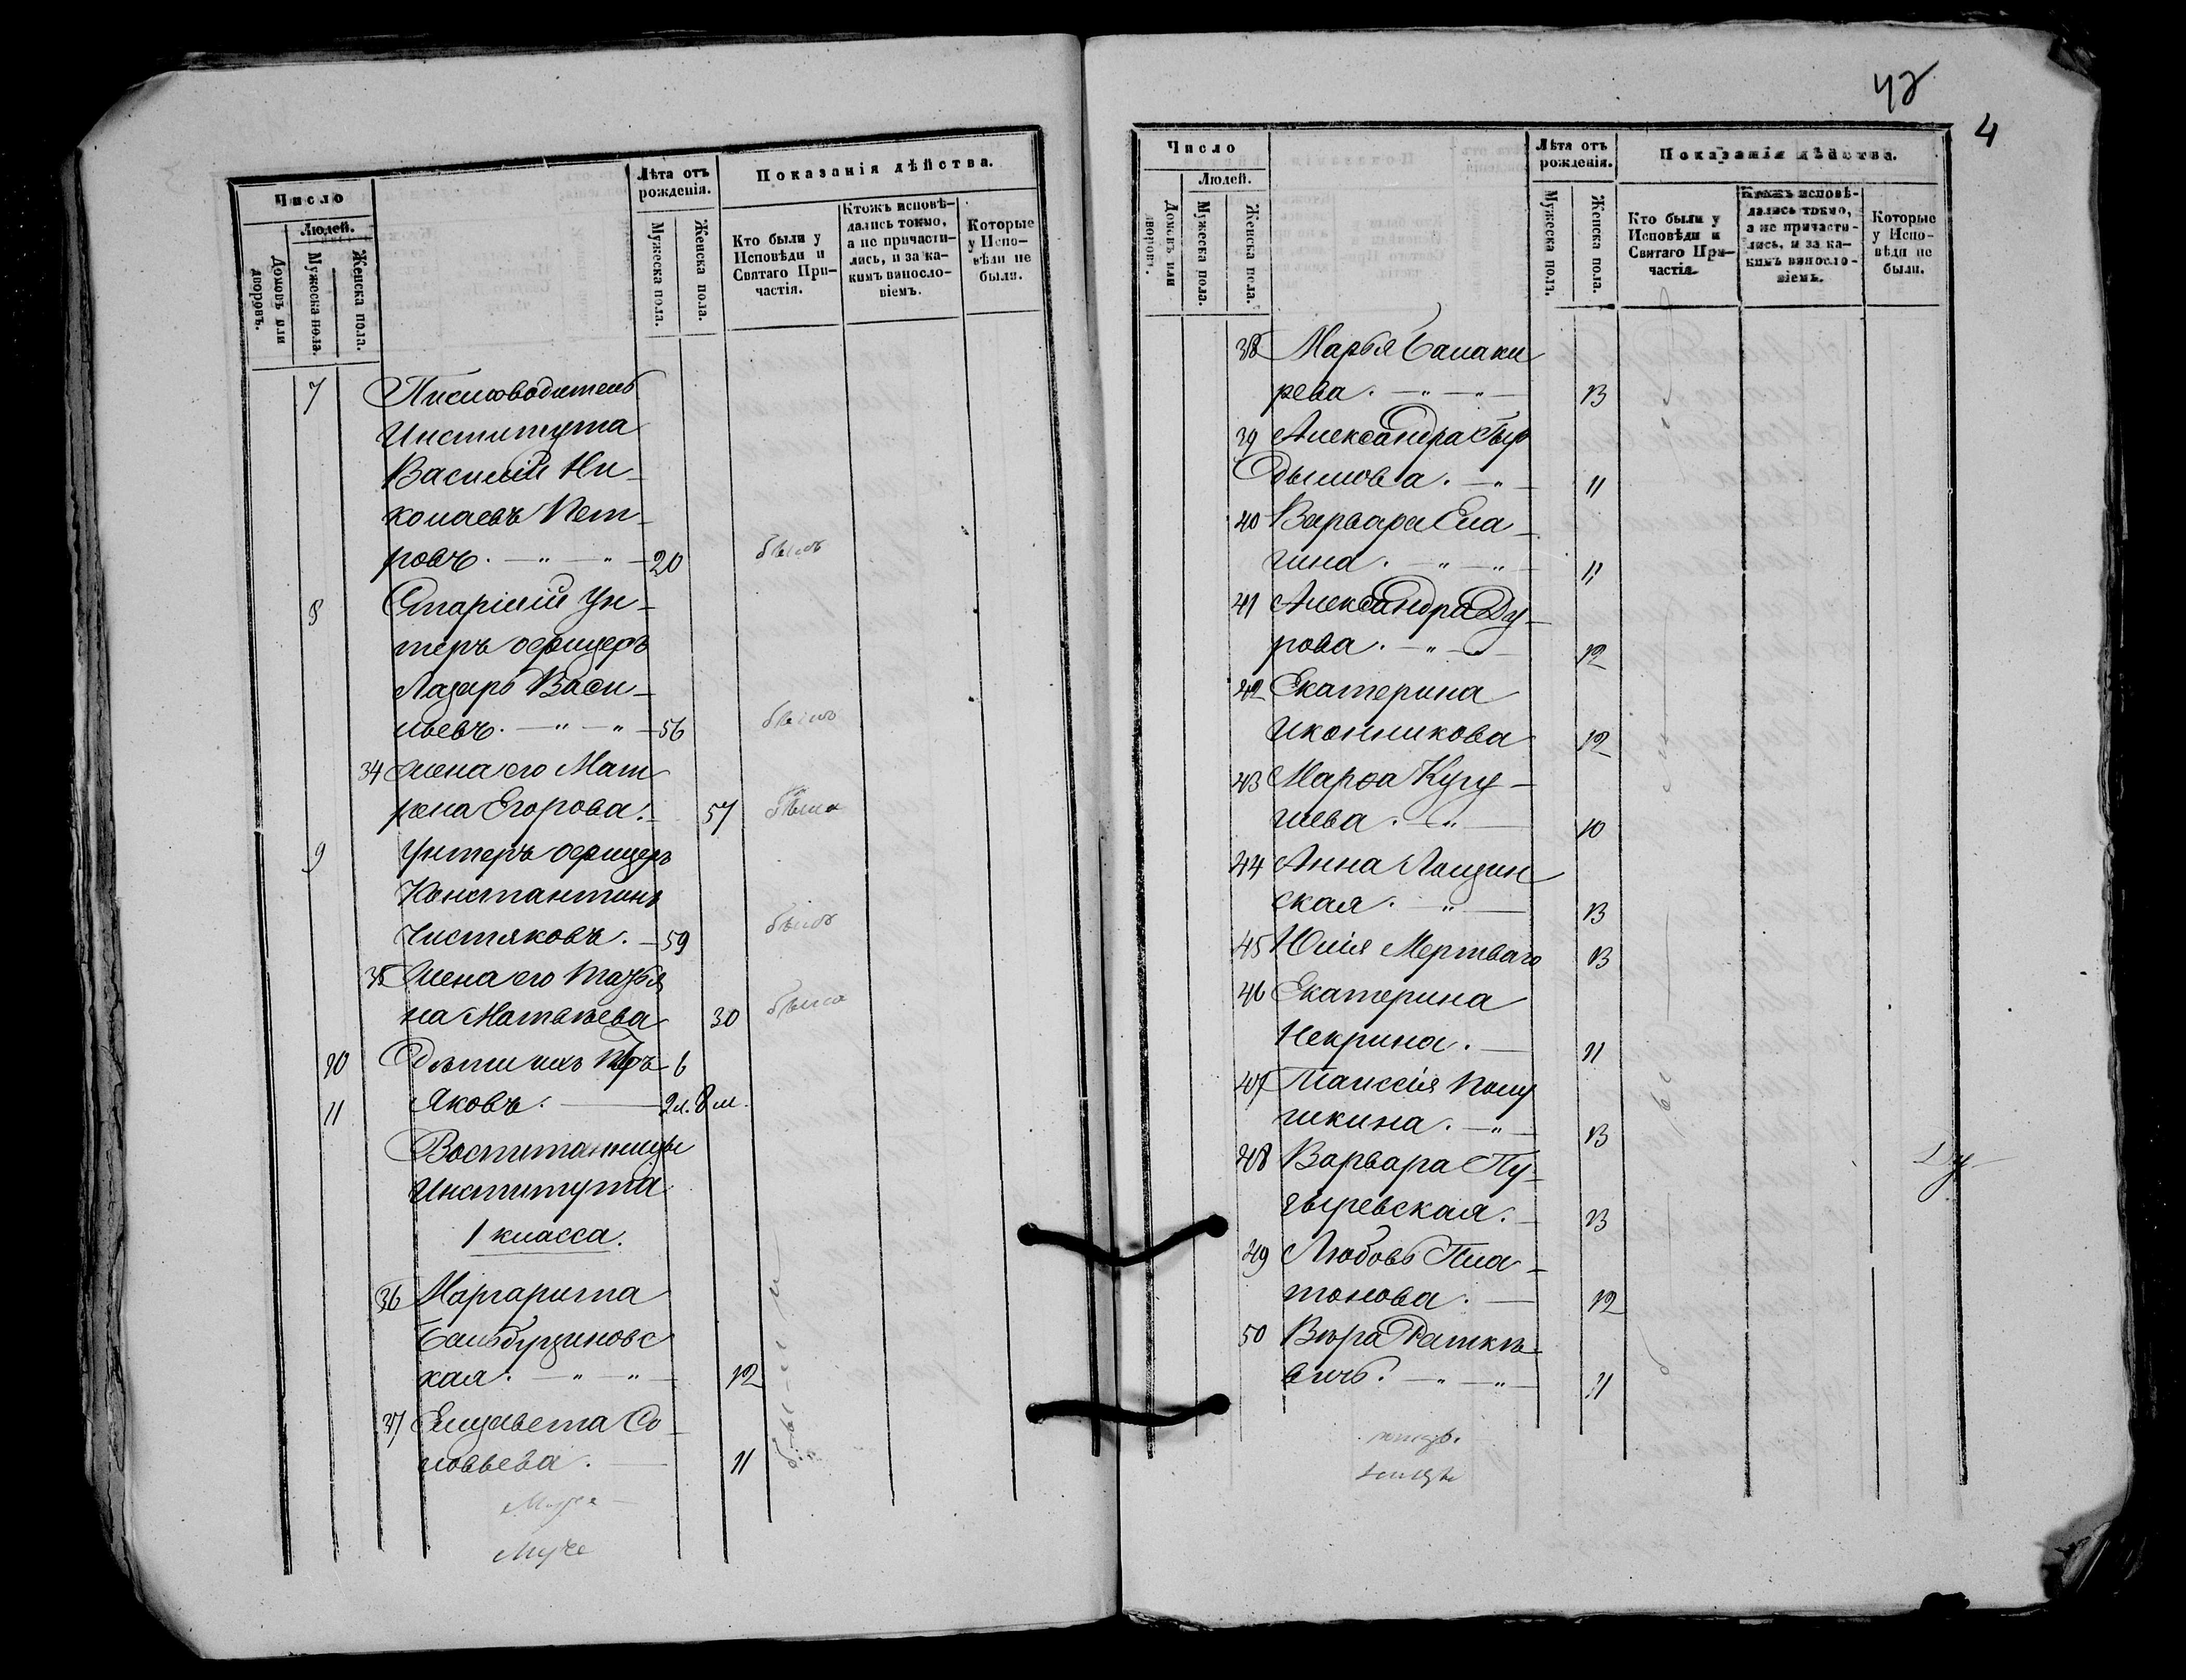 Число
Людей.
Домовъ или дворовъ.
Мужеска пола.
Женска пола.
Лѣта отъ рожденія.
Мужеска пола.
Женска пола.
Показанія дѣйства.
Кто были у Исповѣди и Святаго При-
частія.
Ктожъ исповѣ-
дались токмо,
а не причасти-
лись, и за ка-
кимъ винос­ло-
віемъ.
Которые
у Испо-
вѣди не
были.
7 Письмоводитель
Института
Василій Ни-
колаевъ Пет-
ровъ. — " — " — 20 былъ
8 Старшій Ун-
теръ офицеръ
Лазарь Васи-
льевъ. — " — " — 56 былъ
34 Жена его Мат
рена Егорова. — 57 была
9 Унтеръ офицеръ
Константинъ
Чистяковъ. — 59 былъ
35 Жена его Татья
на Матвѣева 30 была
10 Дѣти ихъ 6
11 Яковъ. — 2 л. 8 м.
Воспитанницы
Института
1 класса.
36 Маргарита
Бальбуциновс
кая. — " — " — 12
37 Елизавета Со-
ловьева. — 11
42
4
Число
Людей.
Домовъ или дворовъ.
Мужеска пола.
Женска пола.
Лѣта отъ
рожденія.
Мужеска пола.
Женска пола.
Показанія дѣйства.
Кто были у
Исповѣди и
Святаго При-
частія.
Ктожъ исповѣ-
дались токмо,
а не причасти-
лись, и за ка-
кимъ винос­ло-
віемъ.
Которые
у Испо-
вѣди не
были.
38 Марья Балаки
рева. — " — " — 13
39 Александра Быр
дымова. — " — 11
40 Варвара Ела-
гина. — " — " — 11
41 Александра Ду-
рова. — " — 12
42 Екатерина
Иконникова 12
43 Марѳа Кугу-
шева. — " — 10
44 Анна Лощин
ская. — " — 13
45 Юлія Мертваго 13
46 Екатерина
Некрина. — 11
47 Таисія Полу
шкина. — " — 13
48 Варвара Пу-
зыревская. — 13
49 Любовь Пла-
тонова. — 12
50 Вѣра Раткѣ-
вичъ. — " — " — 11